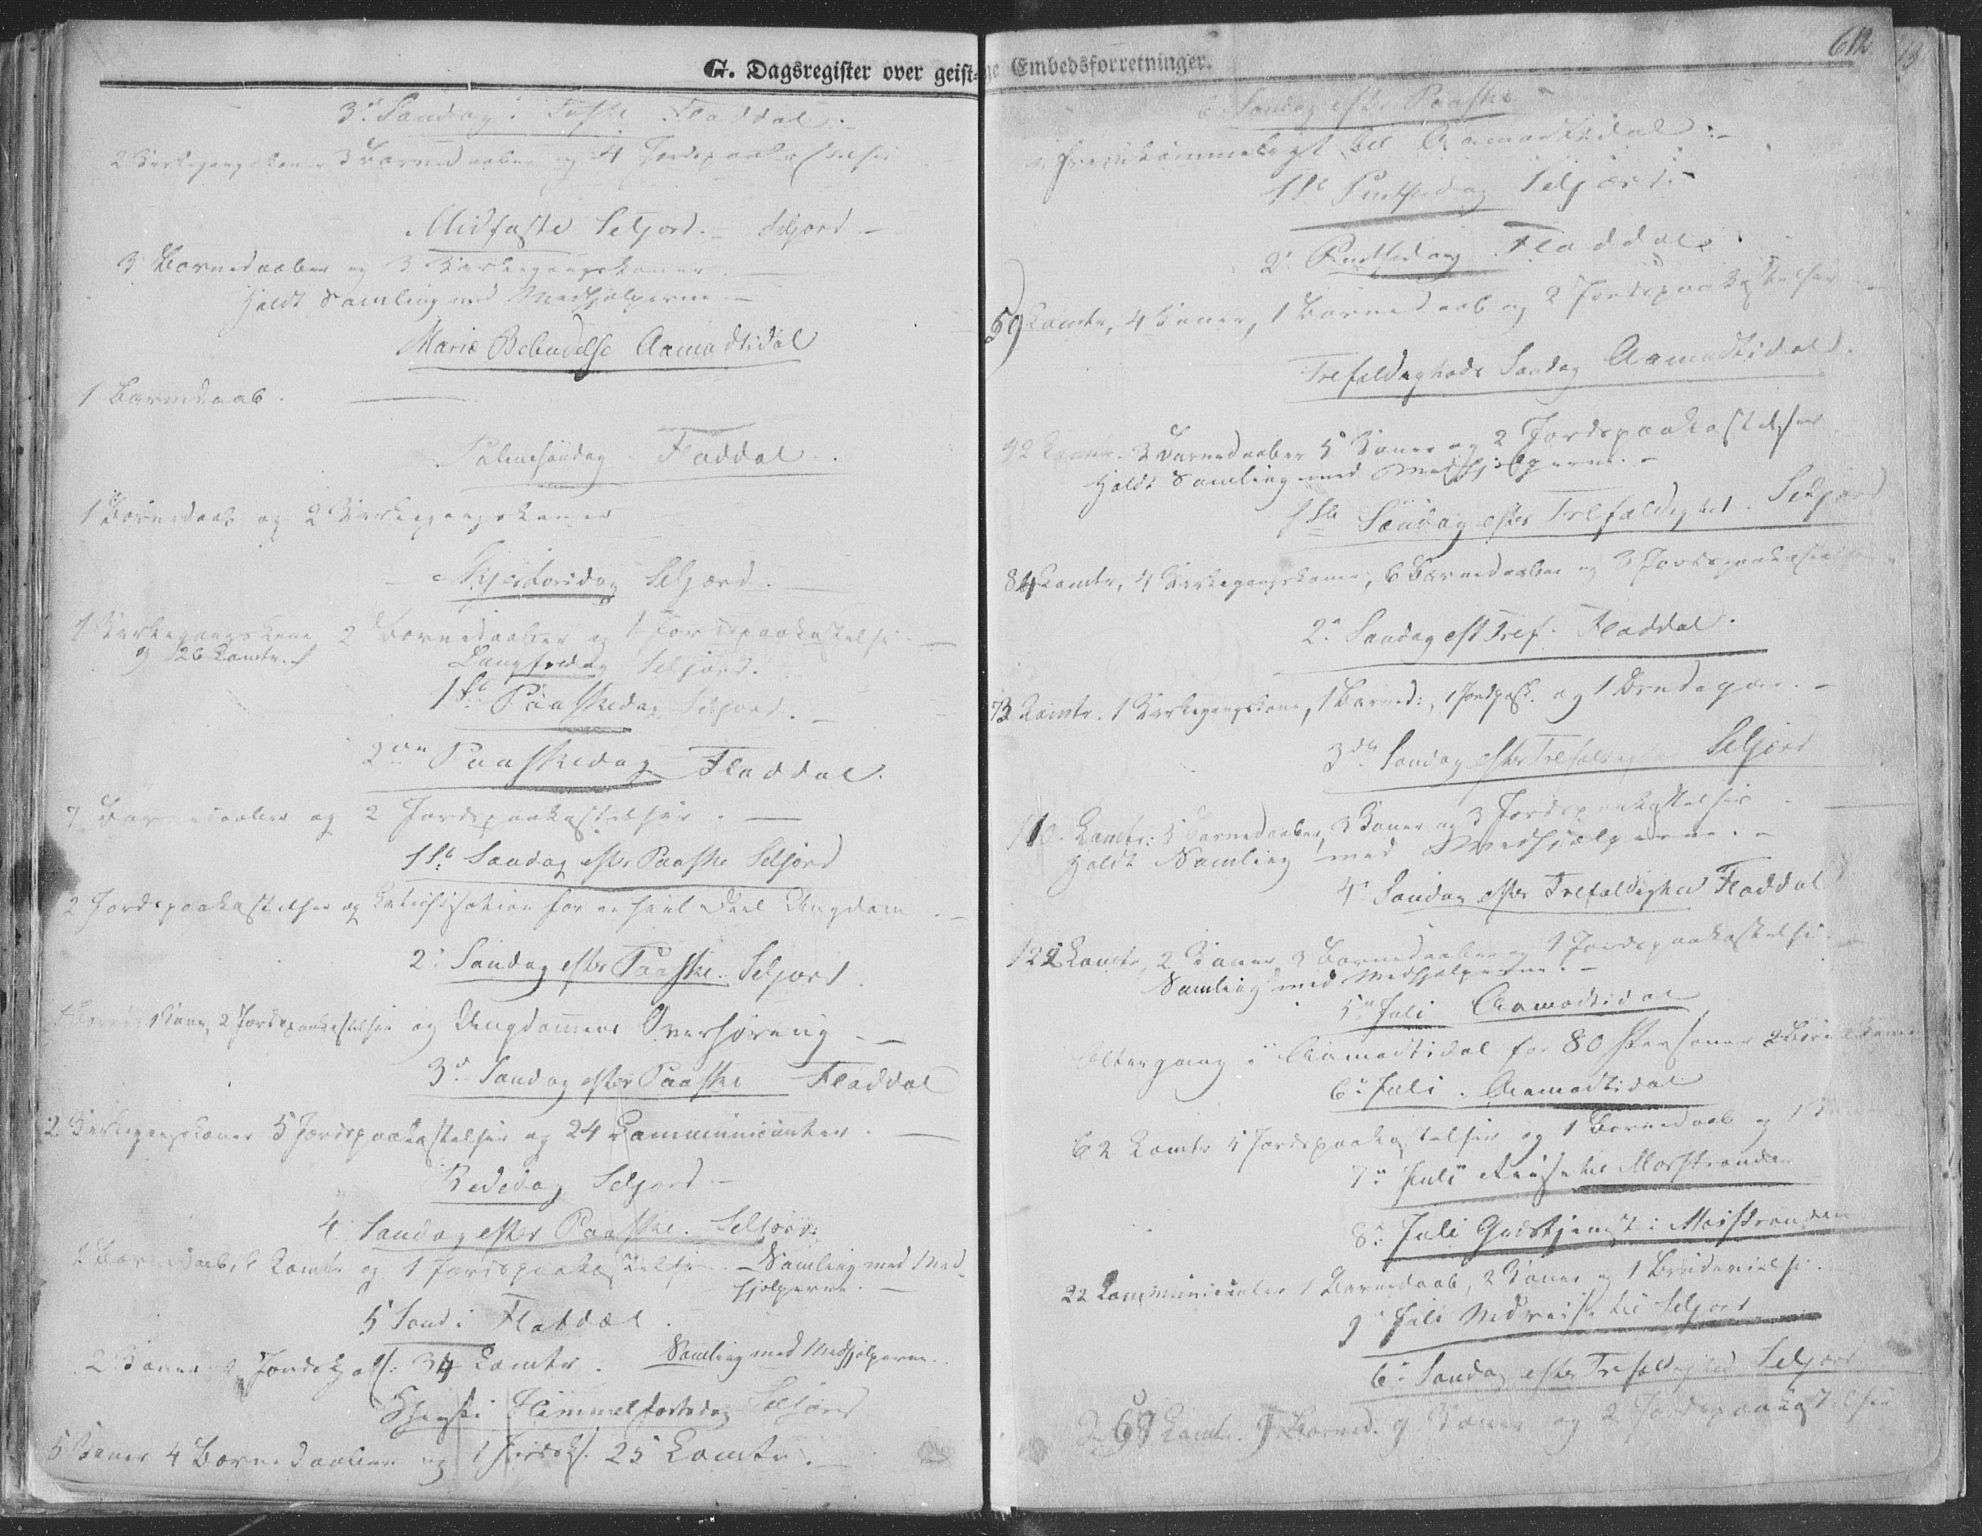 G. Dagsregister over geist=
3d Søndag i Faste Fladdal.
2 Kirkegangskoner 3 Barnedaaber og 4 Jordspaakastelser
Midfaste Seljord. Seljord
3 Barnedaaber og 3 Kirkegangskoner.
Holdt Samling med Medhjelperne
Mariæ Bebudelse Aamodtsdal
1 Barnedaab.
Palmesøndag Fladdal.
1 Barnedaab og 2 Kirkegangskoner
Skjertorsdag Seljord.
1 Kirkegangskone 2 Barnedaaber og 1 Jordspaakastelse
og 126 Comtr.
Langfredag Seljord.
1ste Paaskedag Seljord.
2den Paaskedag Fladdal.
7 Barnedaaber og 2 Jordspaakastelser.
1ste Søndag efter Paaske Seljord
2 Jordspaakastelser og Catechisation for en heel Deel Ungdom
2. Søndag efter Paaske. Seljord.
1 Kone, 2 Jordspaakastelser og Ungdommens Overhøring
3d Søndag efter Paaske Fladdal
2 Kirkegangskoner 5 Jordspaakastelser og 24 Communicanter.
Bededag Seljord
4. Søndag efter Paaske. Seljord.
Barnedaab, Comtr og 1 Jordspaakastelse Samling med Med-
hjelperne.
5 Sønd: Flatdal
2 Koner Jordspk: 34 Comtr. Samling med Medhjelperne.
Christi Himmelfartsdag Seljord
5 Koner 4 Barnedaaber og 1 Jordsk. 25 Comtr.
ge Embedsforretninger.
612
13
6 Søndag efter Paaske
fremkommeligt til Aamodtsdal.
1ste Pintsedag Seljord.
2. Pintsedag Fladdal.
59 Comtr, 4 Koner, 1 Barnedaab og 2 Jordspaakastelser
Trefoldigheds Søndag Aamodtsdal.
92 Comtr. 3 Barnedaaber 5 Koner og 2 Jordspaakastelser
Holdt Samling med Medhjelperne.
1ste Søndag efter Trefoldighed. Seljord
84 Comtr, 4 Kirkegangskoner, 6 Barnedaaber og 3 Jordspaakastelser
2. Søndag eft Tref. Fladdal.
73 Comtr. 1 Kirkegangskone, 1 Barned:, 1 Jordpask. og 1 Brudepar.
3die Søndag efter Trefold Seljord
110. Comtr: 5 Barnedaaber, 3 Koner og 3 Jordspaakastelser
Holdt Samling med Medhjelperne.
4. Søndag efter Trefoldighed Fladdal
122 Comtr, 2 Koner 3 Barnedaaber og 1 Jordspaakastelse.
Samling med Medhjelperne.
5. Juli Aamodtsdal
Altergang i Aamodtsdal for 80 Personer
6. Juli. Aamodtsdal
62 Comtr 5 Jordspaakastelser og 1 Barnedaab og
7. Juli Reise til Mosstranden
8. Juli Gudstjeneste i Mosstranden
22 Communicanter 1 Barnedaab, 2 Koner og 1 Brudevielse.
9. Juli Nedreise til Seljord
6. Søndag efter Trefoldighed Seljord
68 Comtr. Barned. 9 Koner og 2 Jordspaakastelser